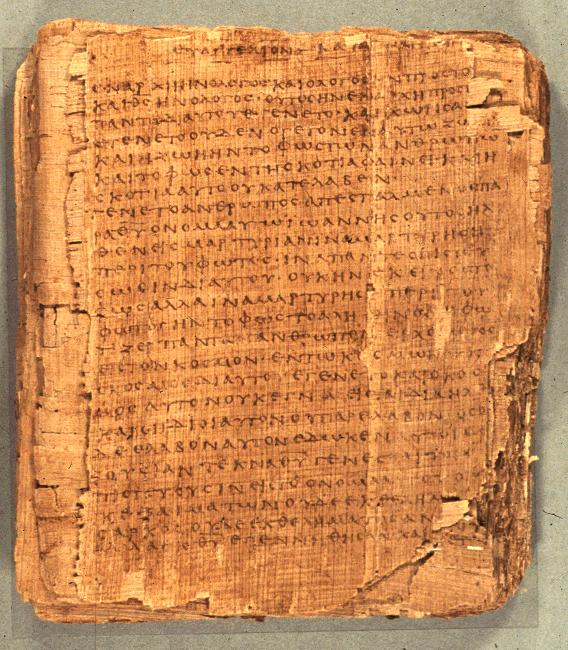 ΕΥΑΓΓΕΛΙΟΝ ΚΑΤΑ
ΕΝ ΑΡΧΗ ΗΝ Ο ΛΟΓΟΣ ΚΑΙ Ο ΛΟΓΟΣ ΗΝ ΠΡΟΣ ΤΟ
ΚΑΙ ΘΣ ΗΝ Ο ΛΟΓΟΣ · ΟΥΤΟΣ ΗΝ ΕΝ ΑΡΧΗ ΠΡΟΣ
ΠΑΝΤΑ ΔΙ ΑΥΤΟΥ ΕΓΕΝΕΤΟ · ΚΑΙ ΧΩΡΙΣ
ΕΓΕΝΕΤΟ ΟΥΔΕΝ Ο ΓΕΓΟΝΕΝ ΕΝ ΑΥΤΩ ΖΩ
ΚΑΙ Η ΖΩΗ ΗΝ ΤΟ ΦΩΣ ΤΩΝ ΑΝΘΡΩΠΩ
ΚΑΙ ΤΟ ΦΩΣ ΕΝ ΤΗ ΣΚΟΤΙΑ ΦΑΙΝΕΙ ΚΑΙ Η
ΣΚΟΤΙΑ ΑΥΤΟ ΟΥ ΚΑΤΕΛΑΒΕΝ
ΕΓΕΝΕΤΟ ΑΝΘΡΩΠΟΣ ΑΠΕΣΤΑΛΜΕΝΟΣ ΠΑ
ΡΑ ΘΥ ΟΝΟΜΑ ΑΥΤΩ ΙΩΑΝΝΗΣ ΟΥΤΟΣ ΗΛ
ΘΕΝ ΕΙΣ ΜΑΡΤΥΡΙΑΝ ΙΝΑ ΜΑΡΤΥΡΗΣΗ
ΠΕΡΙ ΤΟΥ ΦΩΤΟΣ · ΙΝΑ ΠΑΝΤΕΣ ΠΙΣΤΕΥ
ΣΩΣΙΝ ΔΙ ΑΥΤΟΥ · ΟΥΚ ΗΝ ΕΚΕΙΝΟΣ ΤΟ
ΦΩΣ ΑΛΛΑ ΙΝΑ ΜΑΡΤΥΡΗΣΗ ΠΕΡΙ ΤΟΥ
ΦΩΤΟΣ ΗΝ ΤΟ ΦΩΣ ΤΟ ΑΛΗΘΙΝΟΝ Ο ΦΩ
ΤΙΖΕΙ ΠΑΝΤΑ ΑΝΘΡΩΠΟΝ
ΕΙΣ ΤΟΝ ΚΟΣΜΟΝ · ΕΝ ΤΩ ΚΟΣΜΩ ΗΝ
ΣΜΟΣ ΔΙ ΑΥΤΟΥ ΕΓΕΝΕΤΟ ΚΑΙ Ο ΚΟΣ
ΜΟΣ ΑΥΤΟΝ ΟΥΚ ΕΓΝΩ ΕΙΣ ΤΑ ΙΔΙΑ ΗΛ
ΚΑΙ ΟΙ ΙΔΙΟΙ ΑΥΤΟΝ ΟΥ ΠΑΡΕΛΑΒΟΝ ΟΣΟ
ΔΕ ΕΛΑΒΟΝ ΑΥΤΟΝ ΕΔΩΚΕΝ ΑΥΤΟΙΣ
ΟΥΣΙΑΝ ΤΕΚΝΑ ΘΥ ΓΕΝΕΣΘΑΙ ΤΟΙΣ
ΠΙΣΤΕΥΟΥΣΙΝ ΕΙΣ ΤΟ ΟΝΟΜΑ
ΑΙΜΑΤΩΝ ΟΥΔΕ ΕΚ ΘΕΛΗΜΑ
ΣΑΡΚΟΣ ΟΥΔΕ ΕΚ ΘΕΛΗΜΑΤΟΣ ΑΝ
ΑΛΛΑ ΕΚ ΘΥ ΕΓΕΝΝΗΘΗΣΑΝ ΚΑΙ